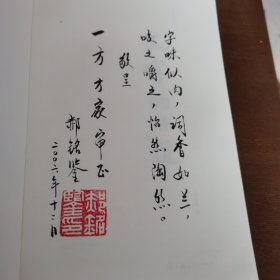 字味似肉，词香如兰，
咬之嚼之，怡然陶然。
敬呈
一方方家审正
郝铭鉴
二〇〇六年十二月
郝铭鉴